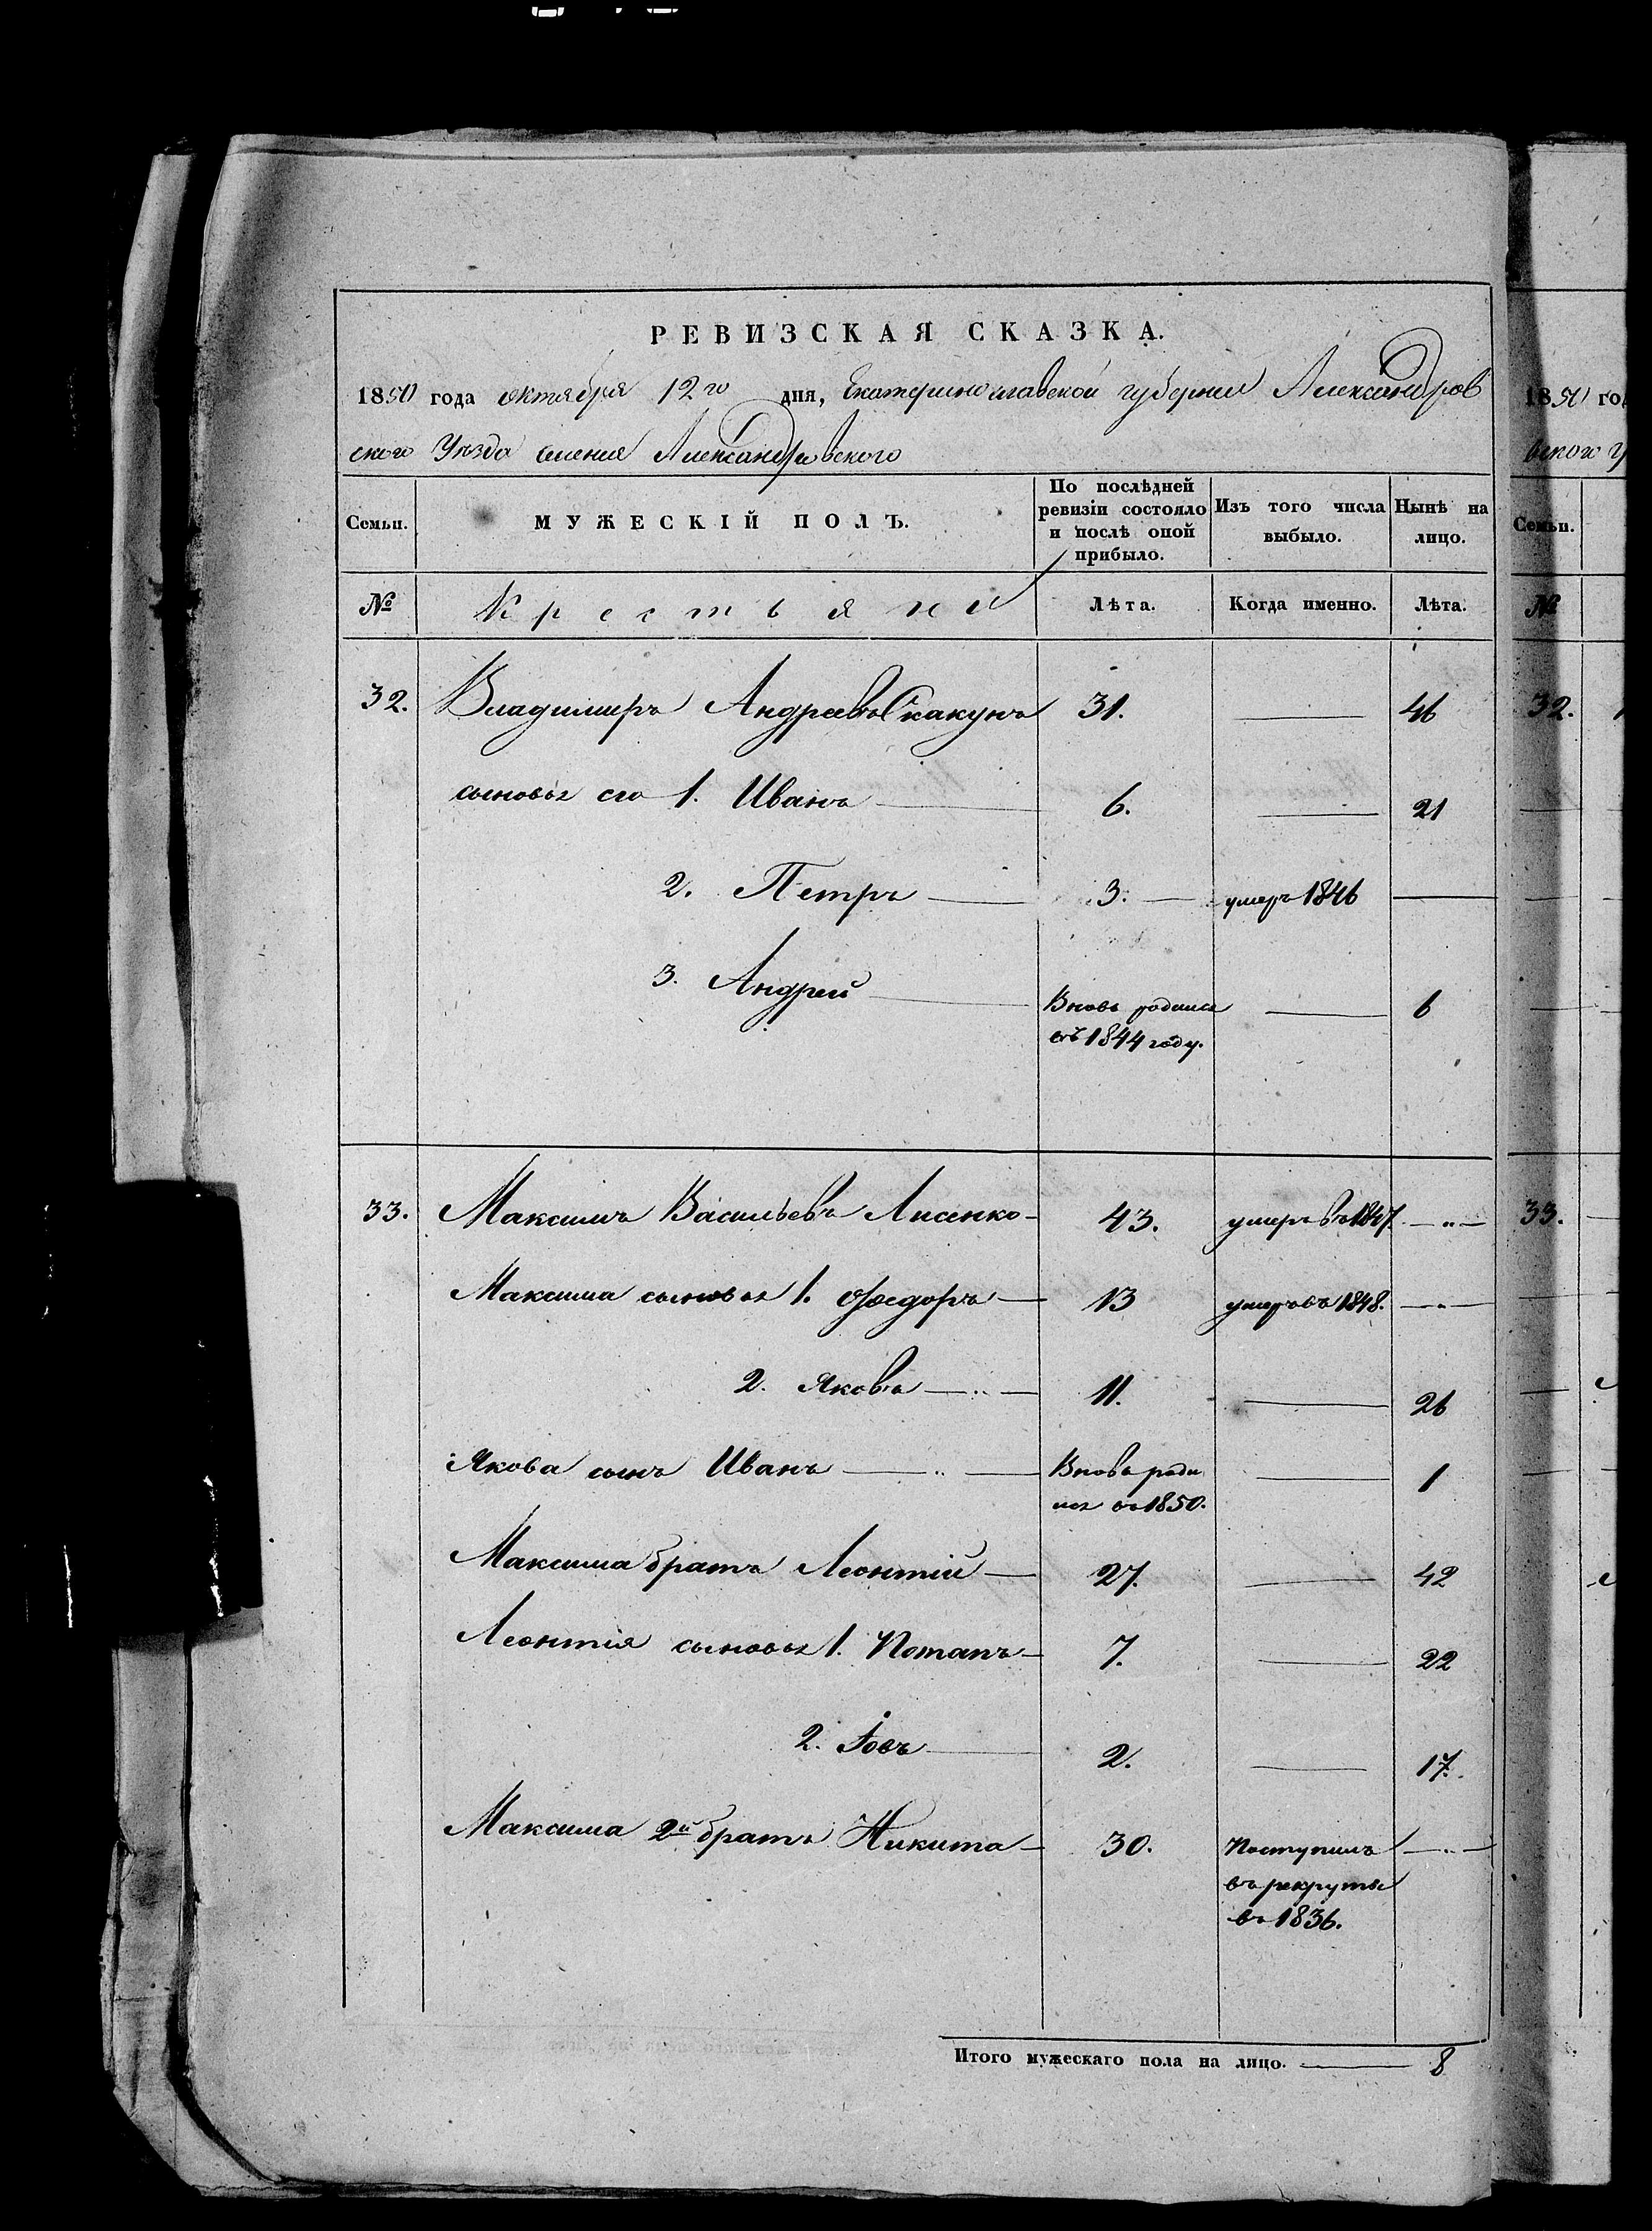 РЕВИЗСКАЯ СКАЗКА.
1850 года октября 12го дня, Екатеринославской губернии Александров
ского Уезда имения Александровского
Семьи. МУЖЕСКІЙ ПОЛЪ. По послѣдней ревизіи состояло и послѣ оной прибыло. Изъ того числа выбыло. Нынѣ на лицо.
№ Крестьяни Лѣта. Когда именно. Лѣта.
32. Владимиръ Андреевъ Скакунъ 31. — 46
сыновья его 1. Иванъ — 6. — 21
2. Петръ — 3. — умеръ 1846 —
3. Андрей — Вновь родился въ 1844 году. — 6
33. Максимъ Васильевъ Лисенко — 43. умеръ въ 1847. — „ —
Максима сыновья 1. Федоръ — 13 умеръ въ 1848. — „ —
2. Яковъ — „ — 11. — 26
Якова сынъ Иванъ — „ — Вновь роди лся въ 1850. — 1
Максима братъ Леонтій — 27. — 42
Леонтія сыновья 1. Потапъ — 7. — 22
2. Іовъ — 2. — 17.
Максима 2й братъ Никита — 30. Поступилъ въ рекруты въ 1836. — „ —
Итого мужескаго пола на лицо. — 8
1850 год
Семьи.
№
32.
33.